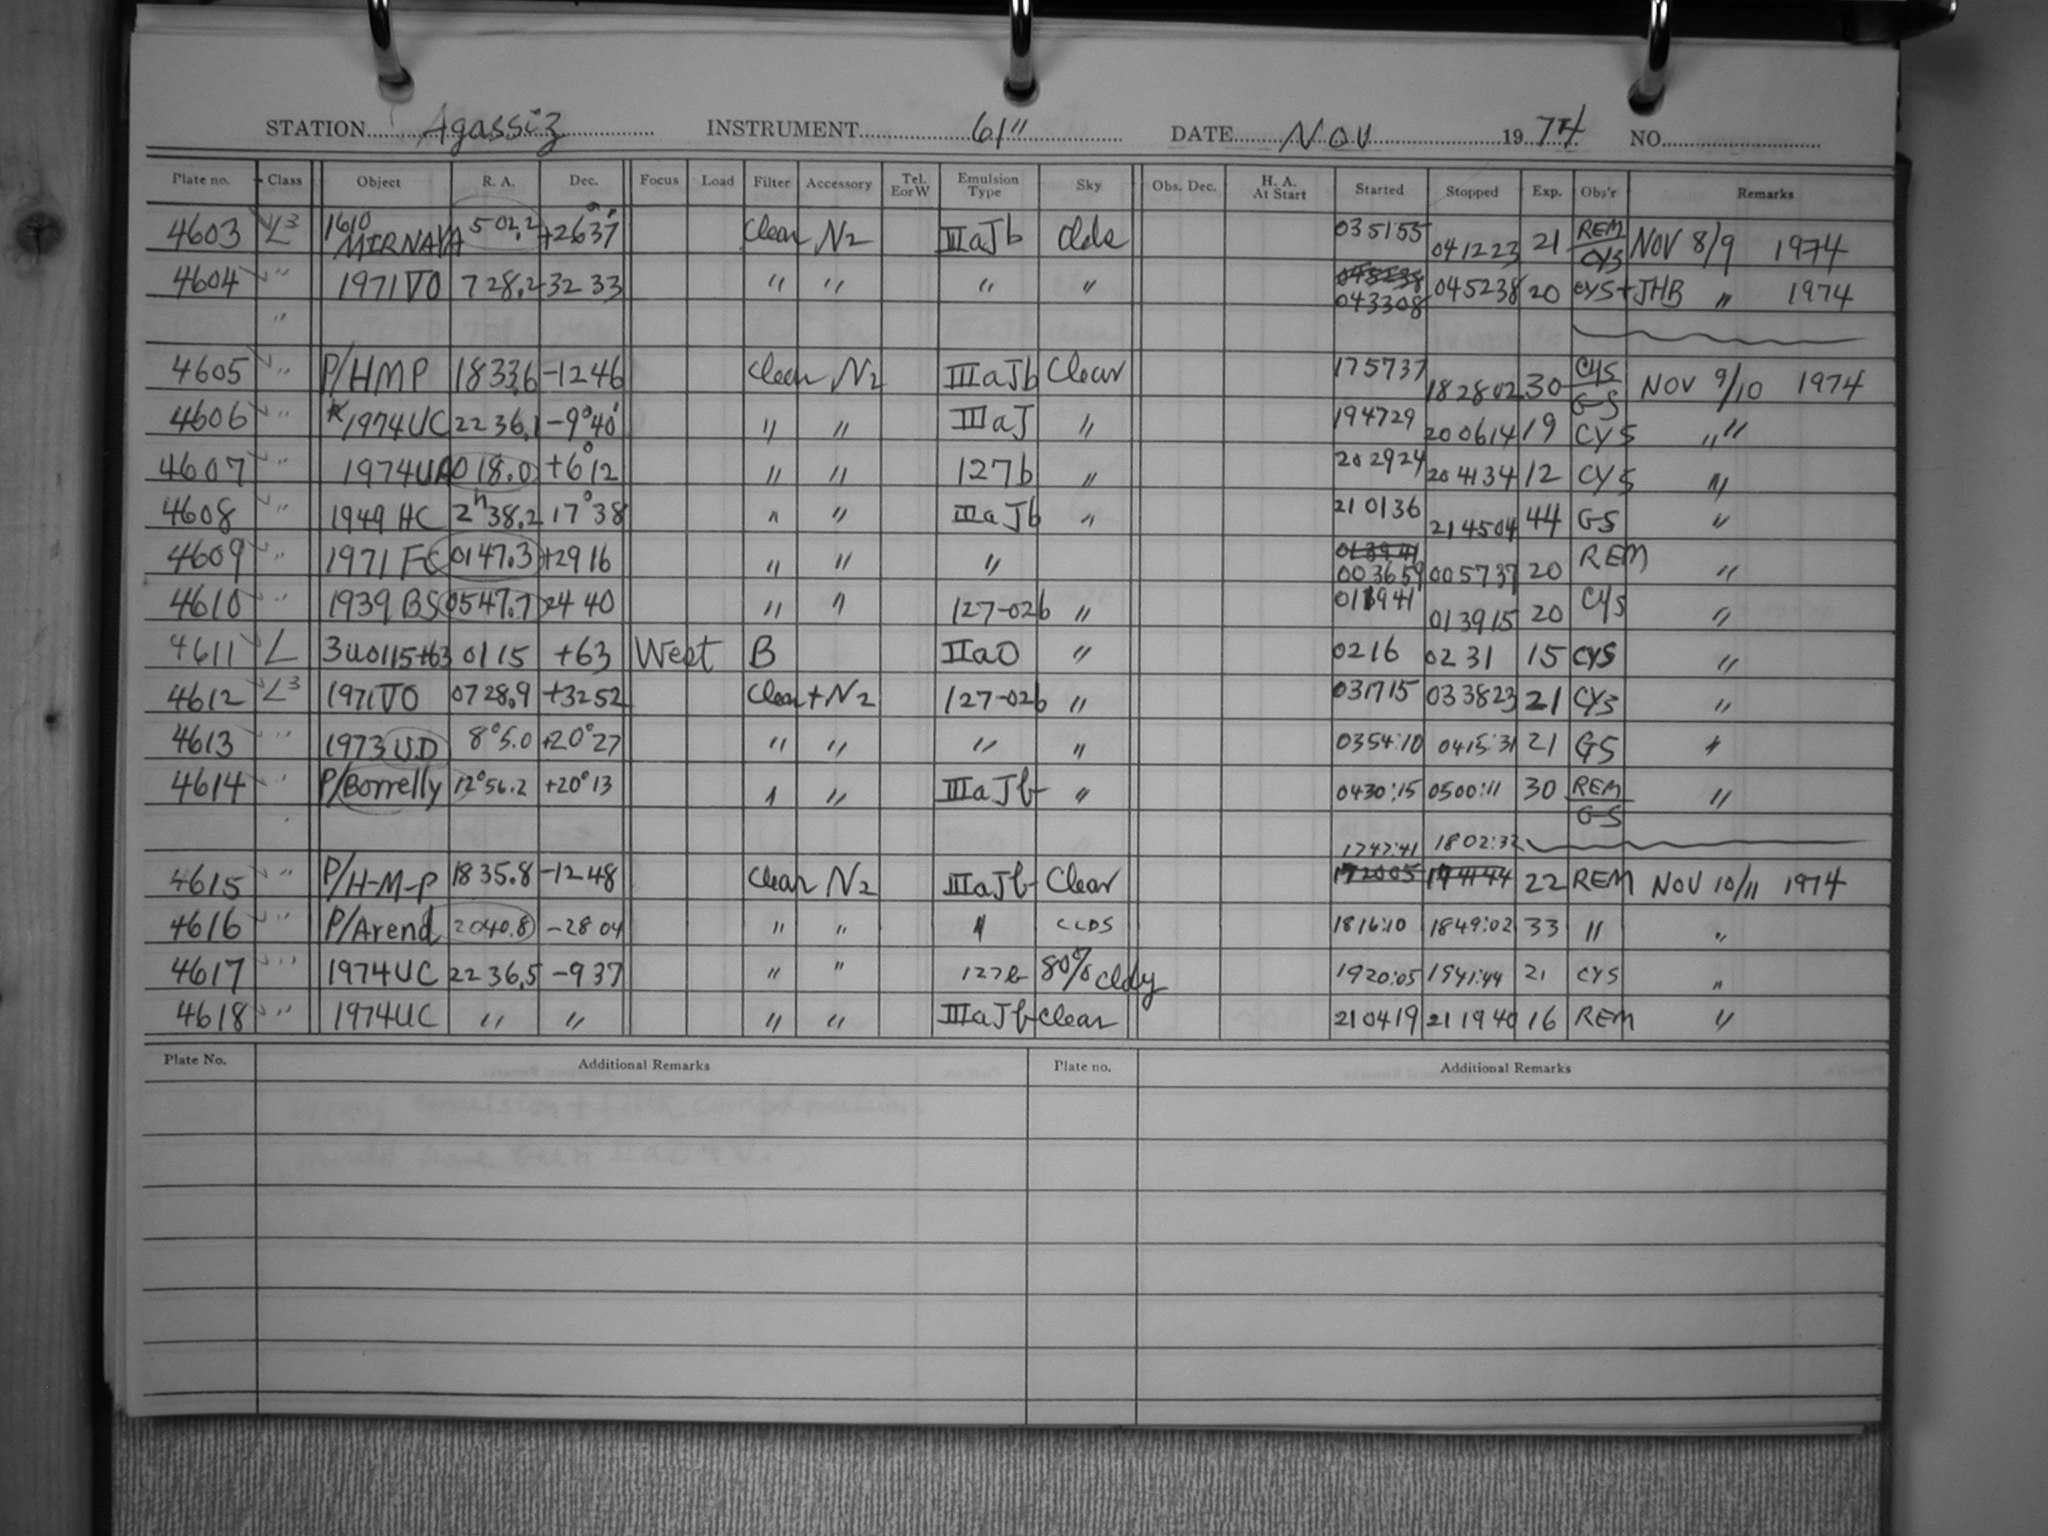 STATION Agassiz INSTRUMENT 61" DATE NOV 1974 NO.
Plate no. Class Object R. A. Dec. Focus Load Filter Accessory Tel. E or W Emulsion Type Sky Obs. Dec. H. A. At Start Started Stopped Exp. Obs'r Remarks
4603 L3 1610 MIRNAYA 5 02.2 +26°37' Clear N2 IIIaJb Clds 035155 041223 21 REM/CYS NOV 8/9 1974
4604 " 1971 VO 7 28.2 32 33 " " " " 043308 045238 20 CYS+JHB " 1974
"
4605 " P/HMP 18 33.6 -12 46 Clear N2 IIIaJb Clear 175737 182802 30 CYS/GS NOV 9/10 1974
4606 " *1974UC 22 36.1 -9°40' " " IIIaJ " 194729 200614 19 CYS "
4607 " 1974UA 0 18.0 +6°12 " " 127b " 202924 204134 12 CYS "
4608 " 1949 HC 2h38.2 17°38 " " IIIaJb " 210136 214504 44 GS "
4609 " 1971 FC 0147.3 +29 16 " " " 003659 005737 20 REM "
4610 " 1939 BS 0547.7 24 40 " " 127-02b " 011941 013915 20 CYS "
4611 L 3U0115+63 01 15 +63 West B IIaO " 0216 0231 15 CYS "
4612 L3 1971 VO 0728.9 +32 52 Clear + N2 127-02b " 031715 033823 21 CYS "
4613 " 1973 UD 8°5.0 +20°27 " " " " 0354:10 0415:31 21 GS "
4614 " P/Borrelly 12°56.2 +20°13 " " IIIaJb " 0430:15 0500:11 30 REM/GS "
1747:41 1802:32
4615 " P/H-M-P 18 35.8 -12 48 Clear N2 IIIaJb Clear 172005 174144 22 REM NOV 10/11 1974
4616 " P/Arend 2040.8 -28 04 " " " CLDS 1816:10 1849:02 33 " "
4617 " 1974UC 22 36.5 -9 37 " " 127b 80% cldy 1920:05 1941:44 21 CYS "
4618 " 1974UC " " " " IIIaJb clear 210419 211940 16 REM "
Plate No. Additional Remarks Plate no. Additional Remarks